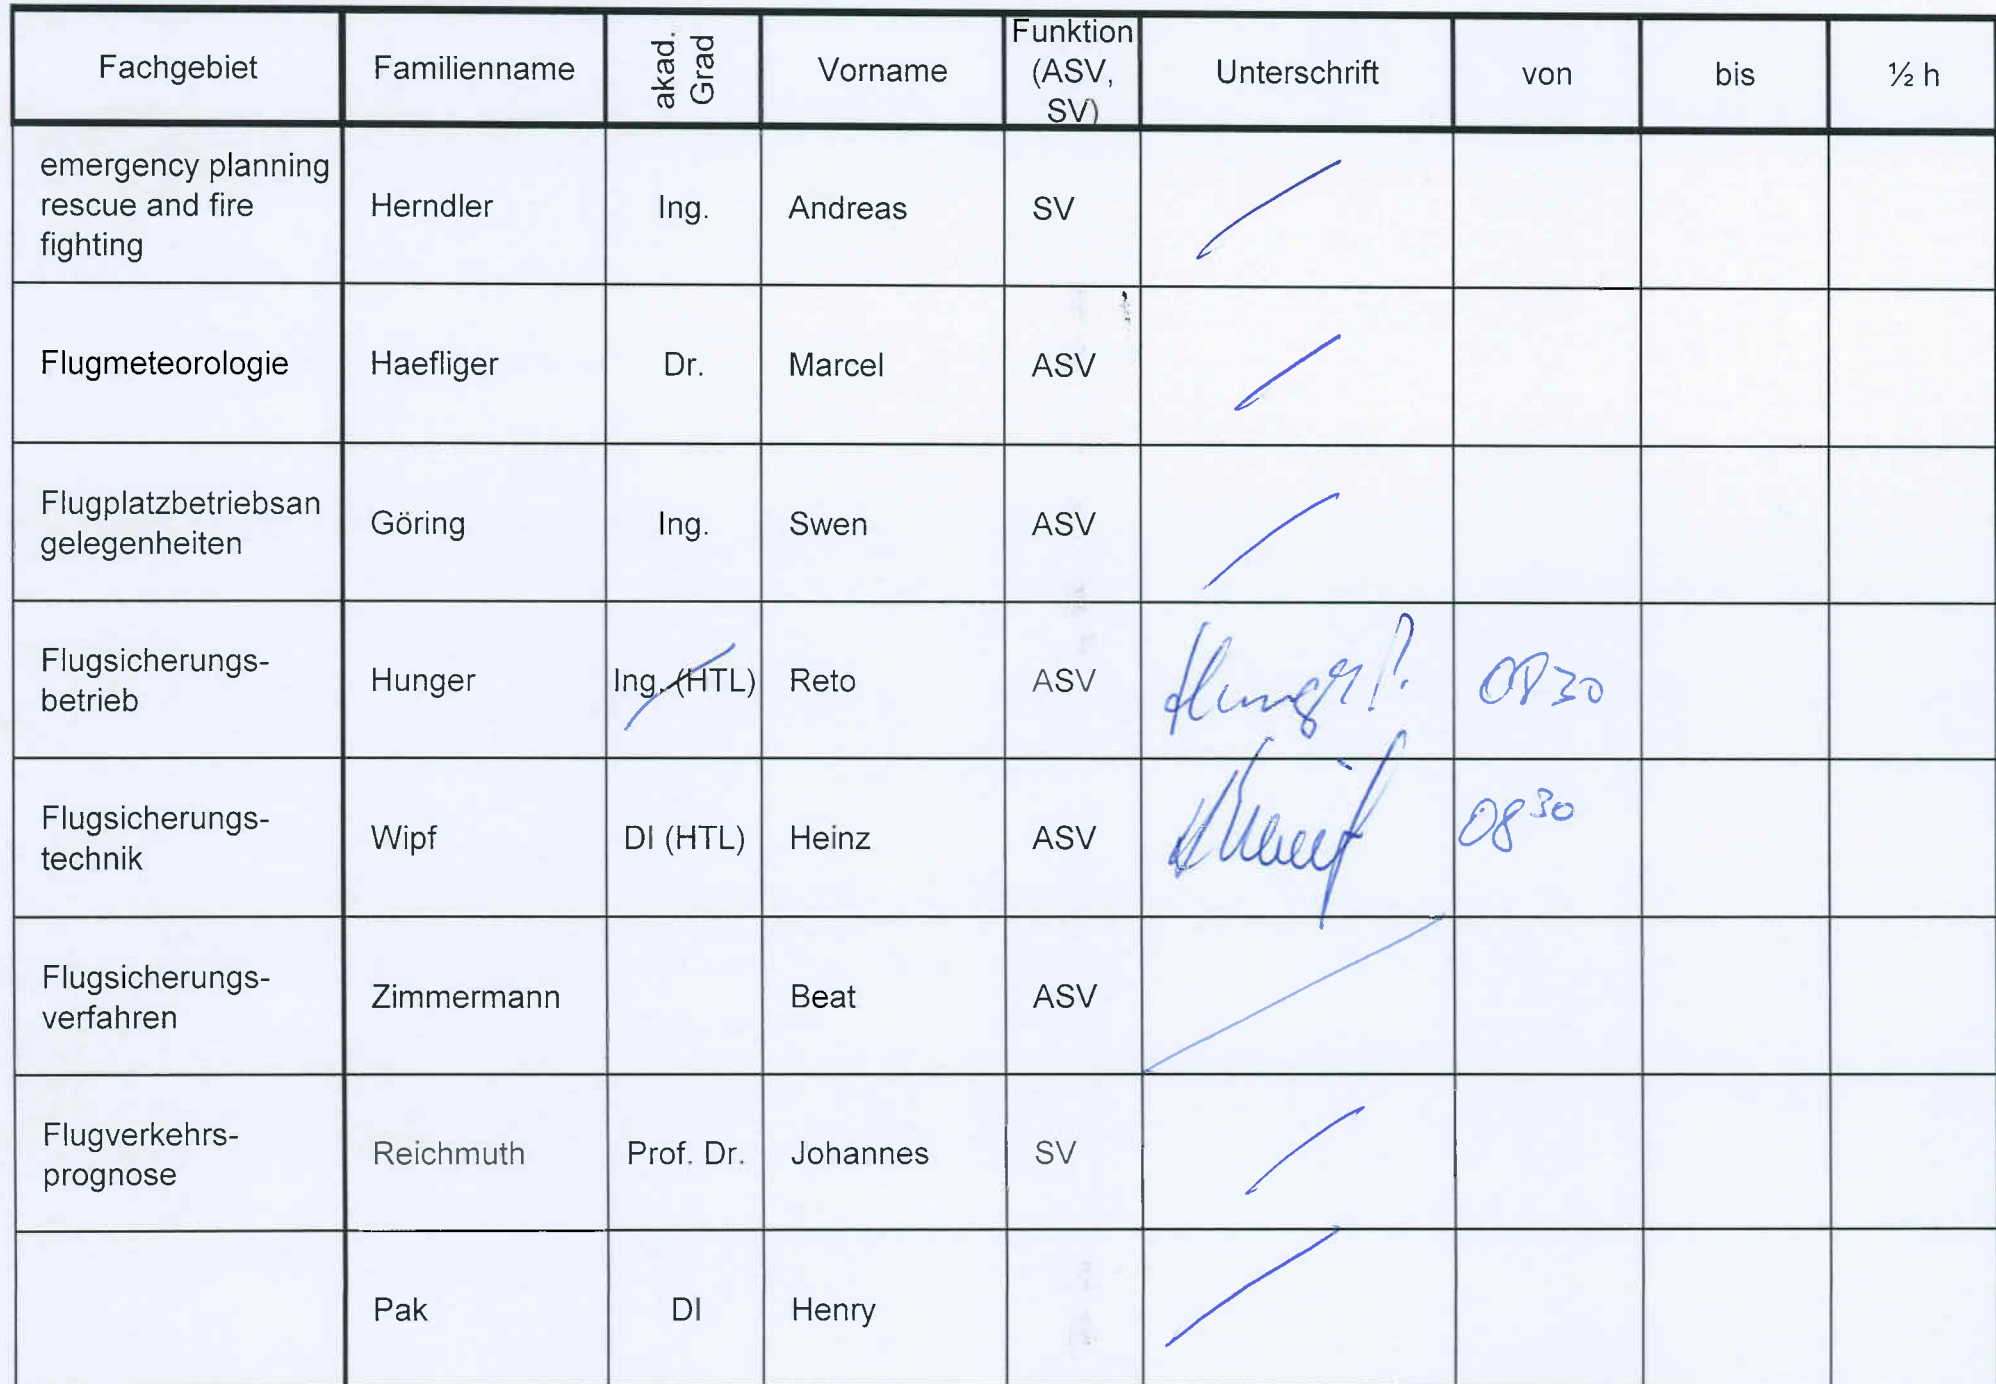 Fachgebiet Familienname akad. Grad Vorname Funktion (ASV, SV) Unterschrift von bis ½ h
emergency planning
rescue and fire
fighting
Herndler Ing. Andreas SV
Flugmeteorologie Haefliger Dr. Marcel ASV
Flugplatzbetriebsan
gelegenheiten
Göring Ing. Swen ASV
Flugsicherungs-
betrieb
Hunger Ing. (HTL) Reto ASV Hunger 0830
Flugsicherungs-
technik
Wipf DI (HTL) Heinz ASV 08 30
Flugsicherungs-
verfahren
Zimmermann Beat ASV
Flugverkehrs-
prognose
Reichmuth Prof. Dr. Johannes SV
Pak DI Henry